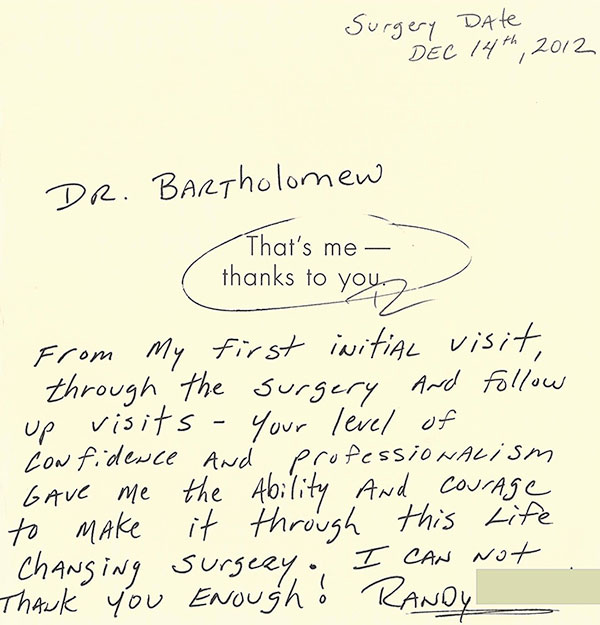 Surgery Date
DEC 14th, 2012
DR. BARTholomew
That's me —
thanks to you.
From My first iNitiAL visit,
through the surgery ANd follow
up visits - your level of
CoNfideNce ANd professioNALism
GAVE me the Ability ANd courAge
to MAKe it through this Life
ChANgiNg surgery. I CAN Not
ThANK you ENough! RANdy